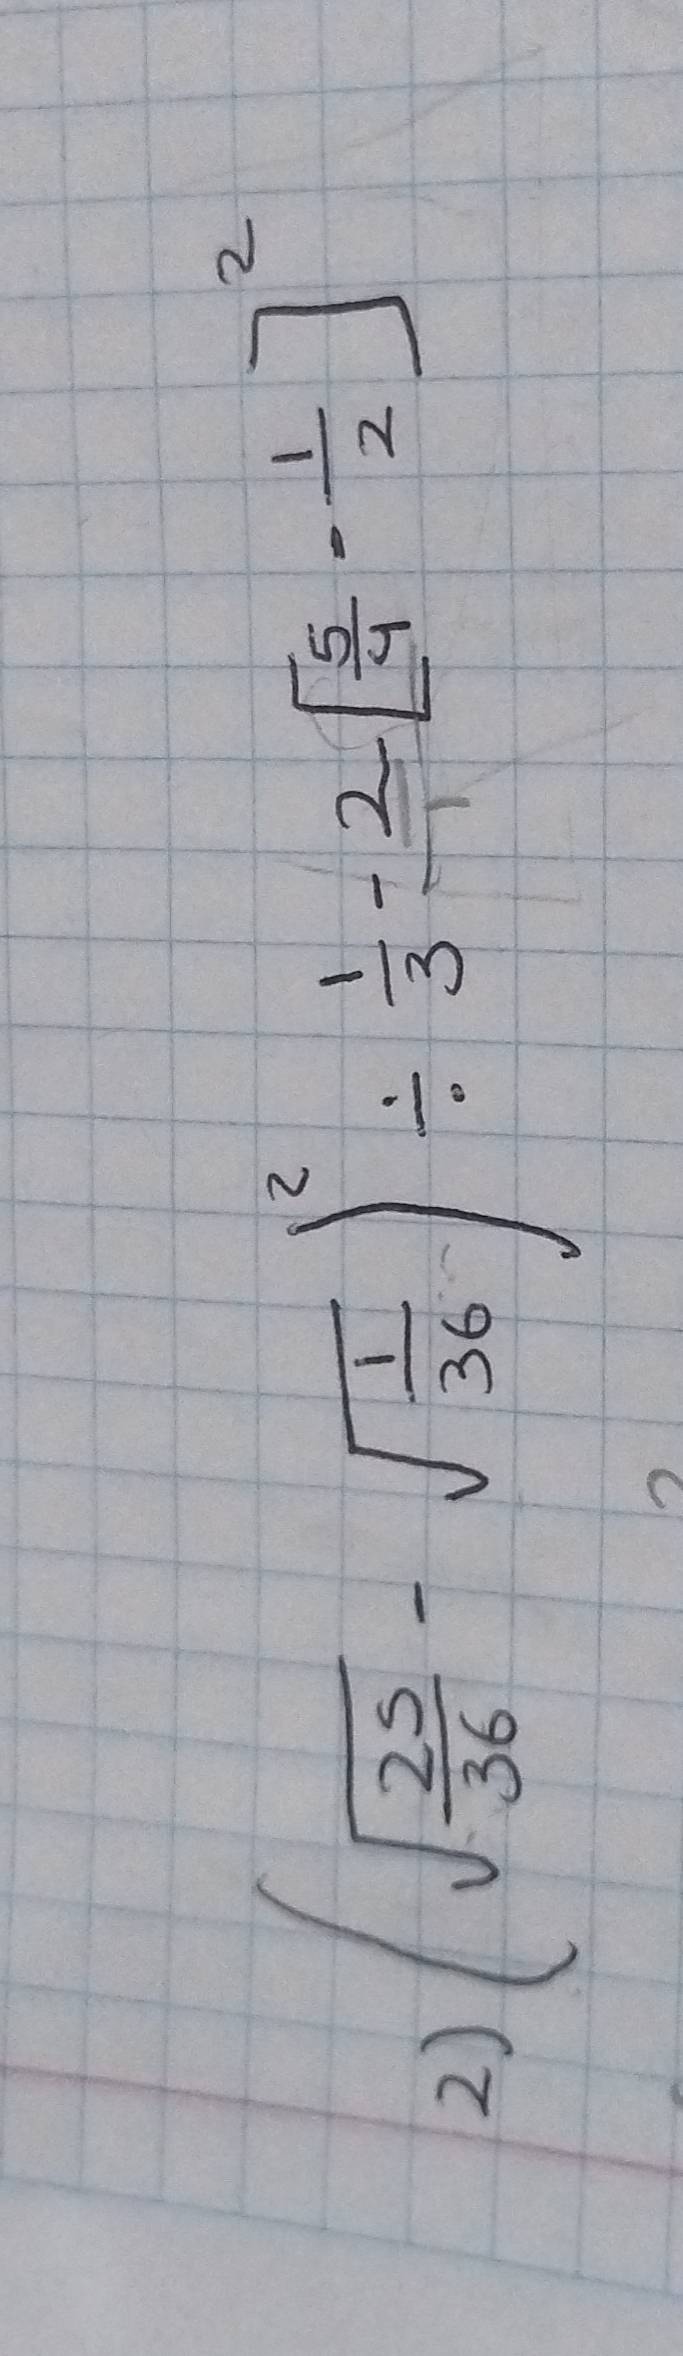 2) (√25/36 - √1/36)² ÷ 1/3 - 2[5/4 · 1/2]²